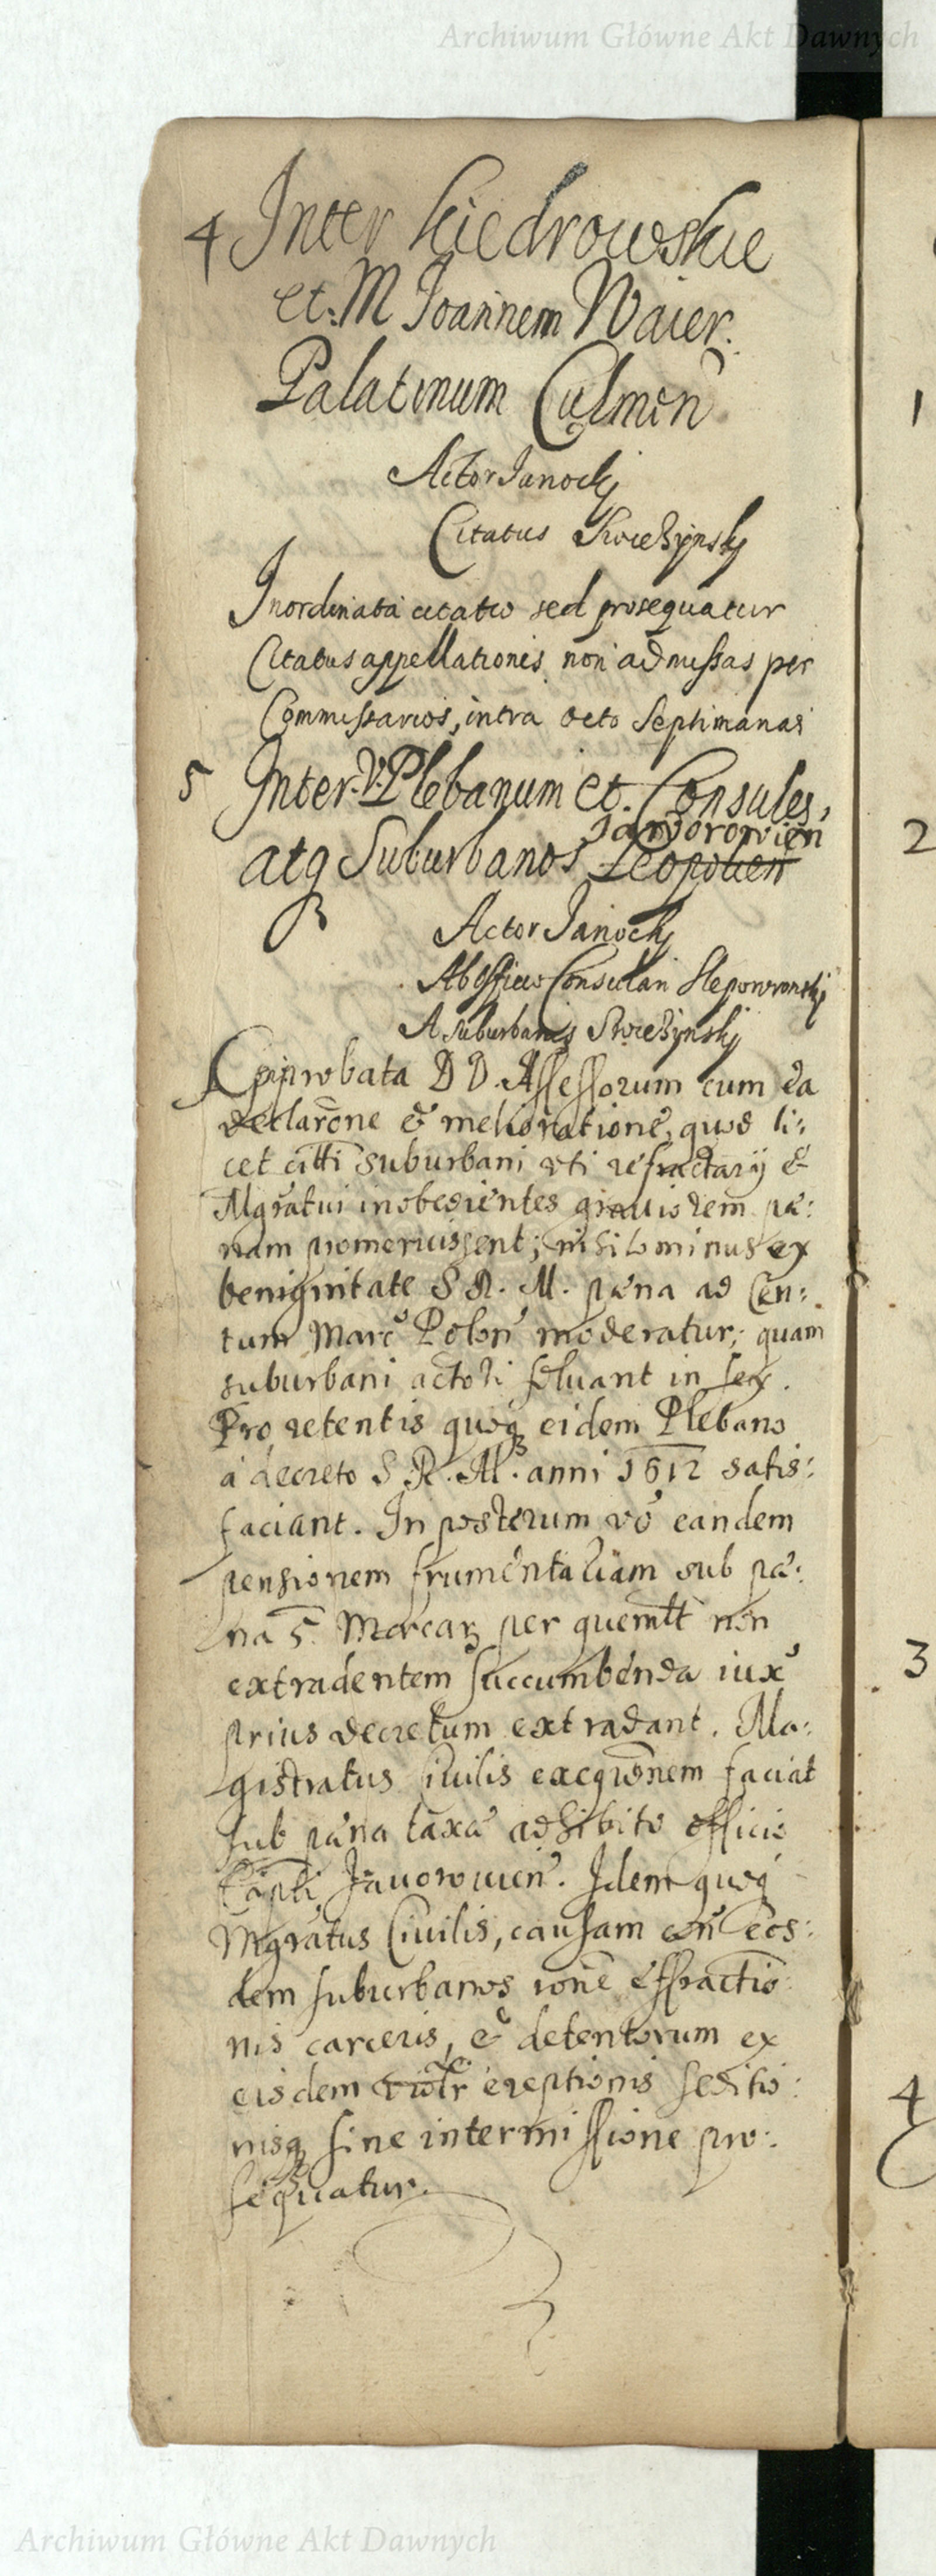 Archiwum Główne Akt Dawnych
4 Inter Kiedrowskie
et M Joannem Waier.
Palatinum Culmen
Actor Janockj
Citatus Skroczÿnskj
Inordinata citatio sed prosequatur
Citatus appellationis non admissas per
Commissarios, intra octo Septimanas
5 Inter V. Plebanum et Consules,
atq Suburbanos Leopolien
Jaworowien
Actor Janockj
Ab officio Consulari Slepowronskj
A suburbanis Skroczÿnskj
Approbata D D. Assessorum cum ea
declarone & melioratione, quod li:
cet citti suburbani uti refractarij &
Mgratui inobedientes grauiorem pæ:
nam promeruissent; nihilominus ex
benignitate S R. M. pæna ad Cen:
tum Marc Polon moderatur; quam
suburbani actori soluant in sex.
Pro retentis quoq eidem Plebano
a decreto S. R. M. anni 1612 satis:
faciant. In posterum vo eandem
pensionem frumentariam sub pæ:
na 5. Marcar per quemlt non
extradentem succumbenda iux
prius decretum extradant. Ma:
gistratus Ciuilis exeqionem faciat
sub pæna taxa adhibito officio
Capti Jauorouien. Idem quoq
Mgratus Ciuilis, causam con eos:
dem suburbanos rone effractio:
nis carceris, & detentorum ex
eisdem violr ereptionis seditio:
nisq sine intermissione pro:
sequatur.
1
2
3
4
Archiwum Główne Akt Dawnych